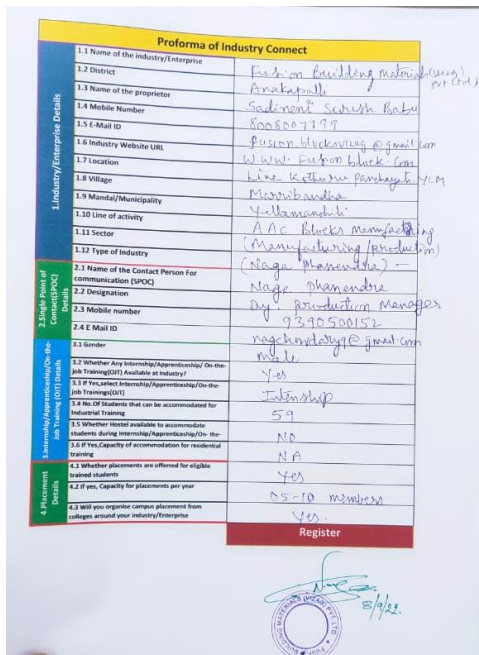 Proforma of Industry Connect
1.Industry/Enterprise Details
1.1 Name of the industry/Enterprise
Fusion Building materials (vizag) Pvt Ltd,
1.2 District
Anakapalli
1.3 Name of the proprietor
Sadineni Suresh Babu
1.4 Mobile Number
8008007799
1.5 E-Mail ID
fusion.blocksvizag@gmail.com
1.6 Industry Website URL
www.Fusionblock.com
1.7 Location
Line Kothuru Panchayati, YLM
1.8 Village
Marribandha
1.9 Mandal/Municipality
Yellamanchili
1.10 Line of activity
AAC Blocks Mennfactring
1.11 Sector
(Manufacturing/production)
1.12 Type of Industry
(Naga Phanendra) -
2.Single Point of Contact(SPOC) Details
2.1 Name of the Contact Person For communication (SPOC)
Naga phanendra
2.2 Designation
Dy. production Manager
2.3 Mobile number
9390500152
2.4 E Mail ID
nagchowdary9@gmail.com
3.Internship/Apprenticeship/On-the-Job Training (OJT) Details
3.1 Gender
male
3.2 Whether Any Internship/Apprenticeship/ On-the-
job Training(OJT) Available at Industry?
Yes
3.3 If Yes,select Internship/Apprenticeship/On-the-
job Trainings(OJT)
Intenship
3.4 No.Of Students that can be accommodated for
Industrial Training
59
3.5 Whether Hostel available to accommodate
students during Internship/Apprenticeship/On- the-
NO
3.6 If Yes,Capacity of accommodation for residential
training
NA
4.Placement Details
4.1 Whether placements are offerred for eligible
trained students
Yes
4.2 If yes, Capacity for placements per year
05-10 members
4.3 Will you organise campus placement from
colleges around your industry/Enterprise
Yes.
Register
8/9/22
FUSION BUILDING MATERIALS (VIZAG) PVT. LTD.